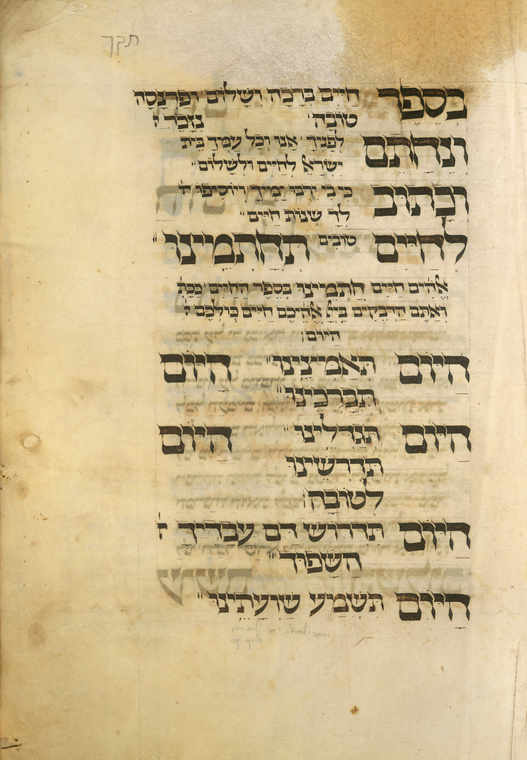 תקך
בספר חיים ברכה ושלום ופרנסה
טובה נזכר ו
ונחתם לפניך אנו וכל עמך בית
ישרא לחיים ולשלום
וכתוב כי בי ירבו ימיך ויוסיפו ל
לך שנות חיים
לחיים טובים תחתמינו
אלהים חיים חתמינו בספר החיים ככת
ואתם הדבקים ביי אלהיכם חיים כולכם ה
היום
היום תאמיצינו היום
תברכינו
היום תגדלינו היום
תדרשינו
לטובה
היום תדרוש דם עבדיך ה
השפוך
היום תשמע שועתינו